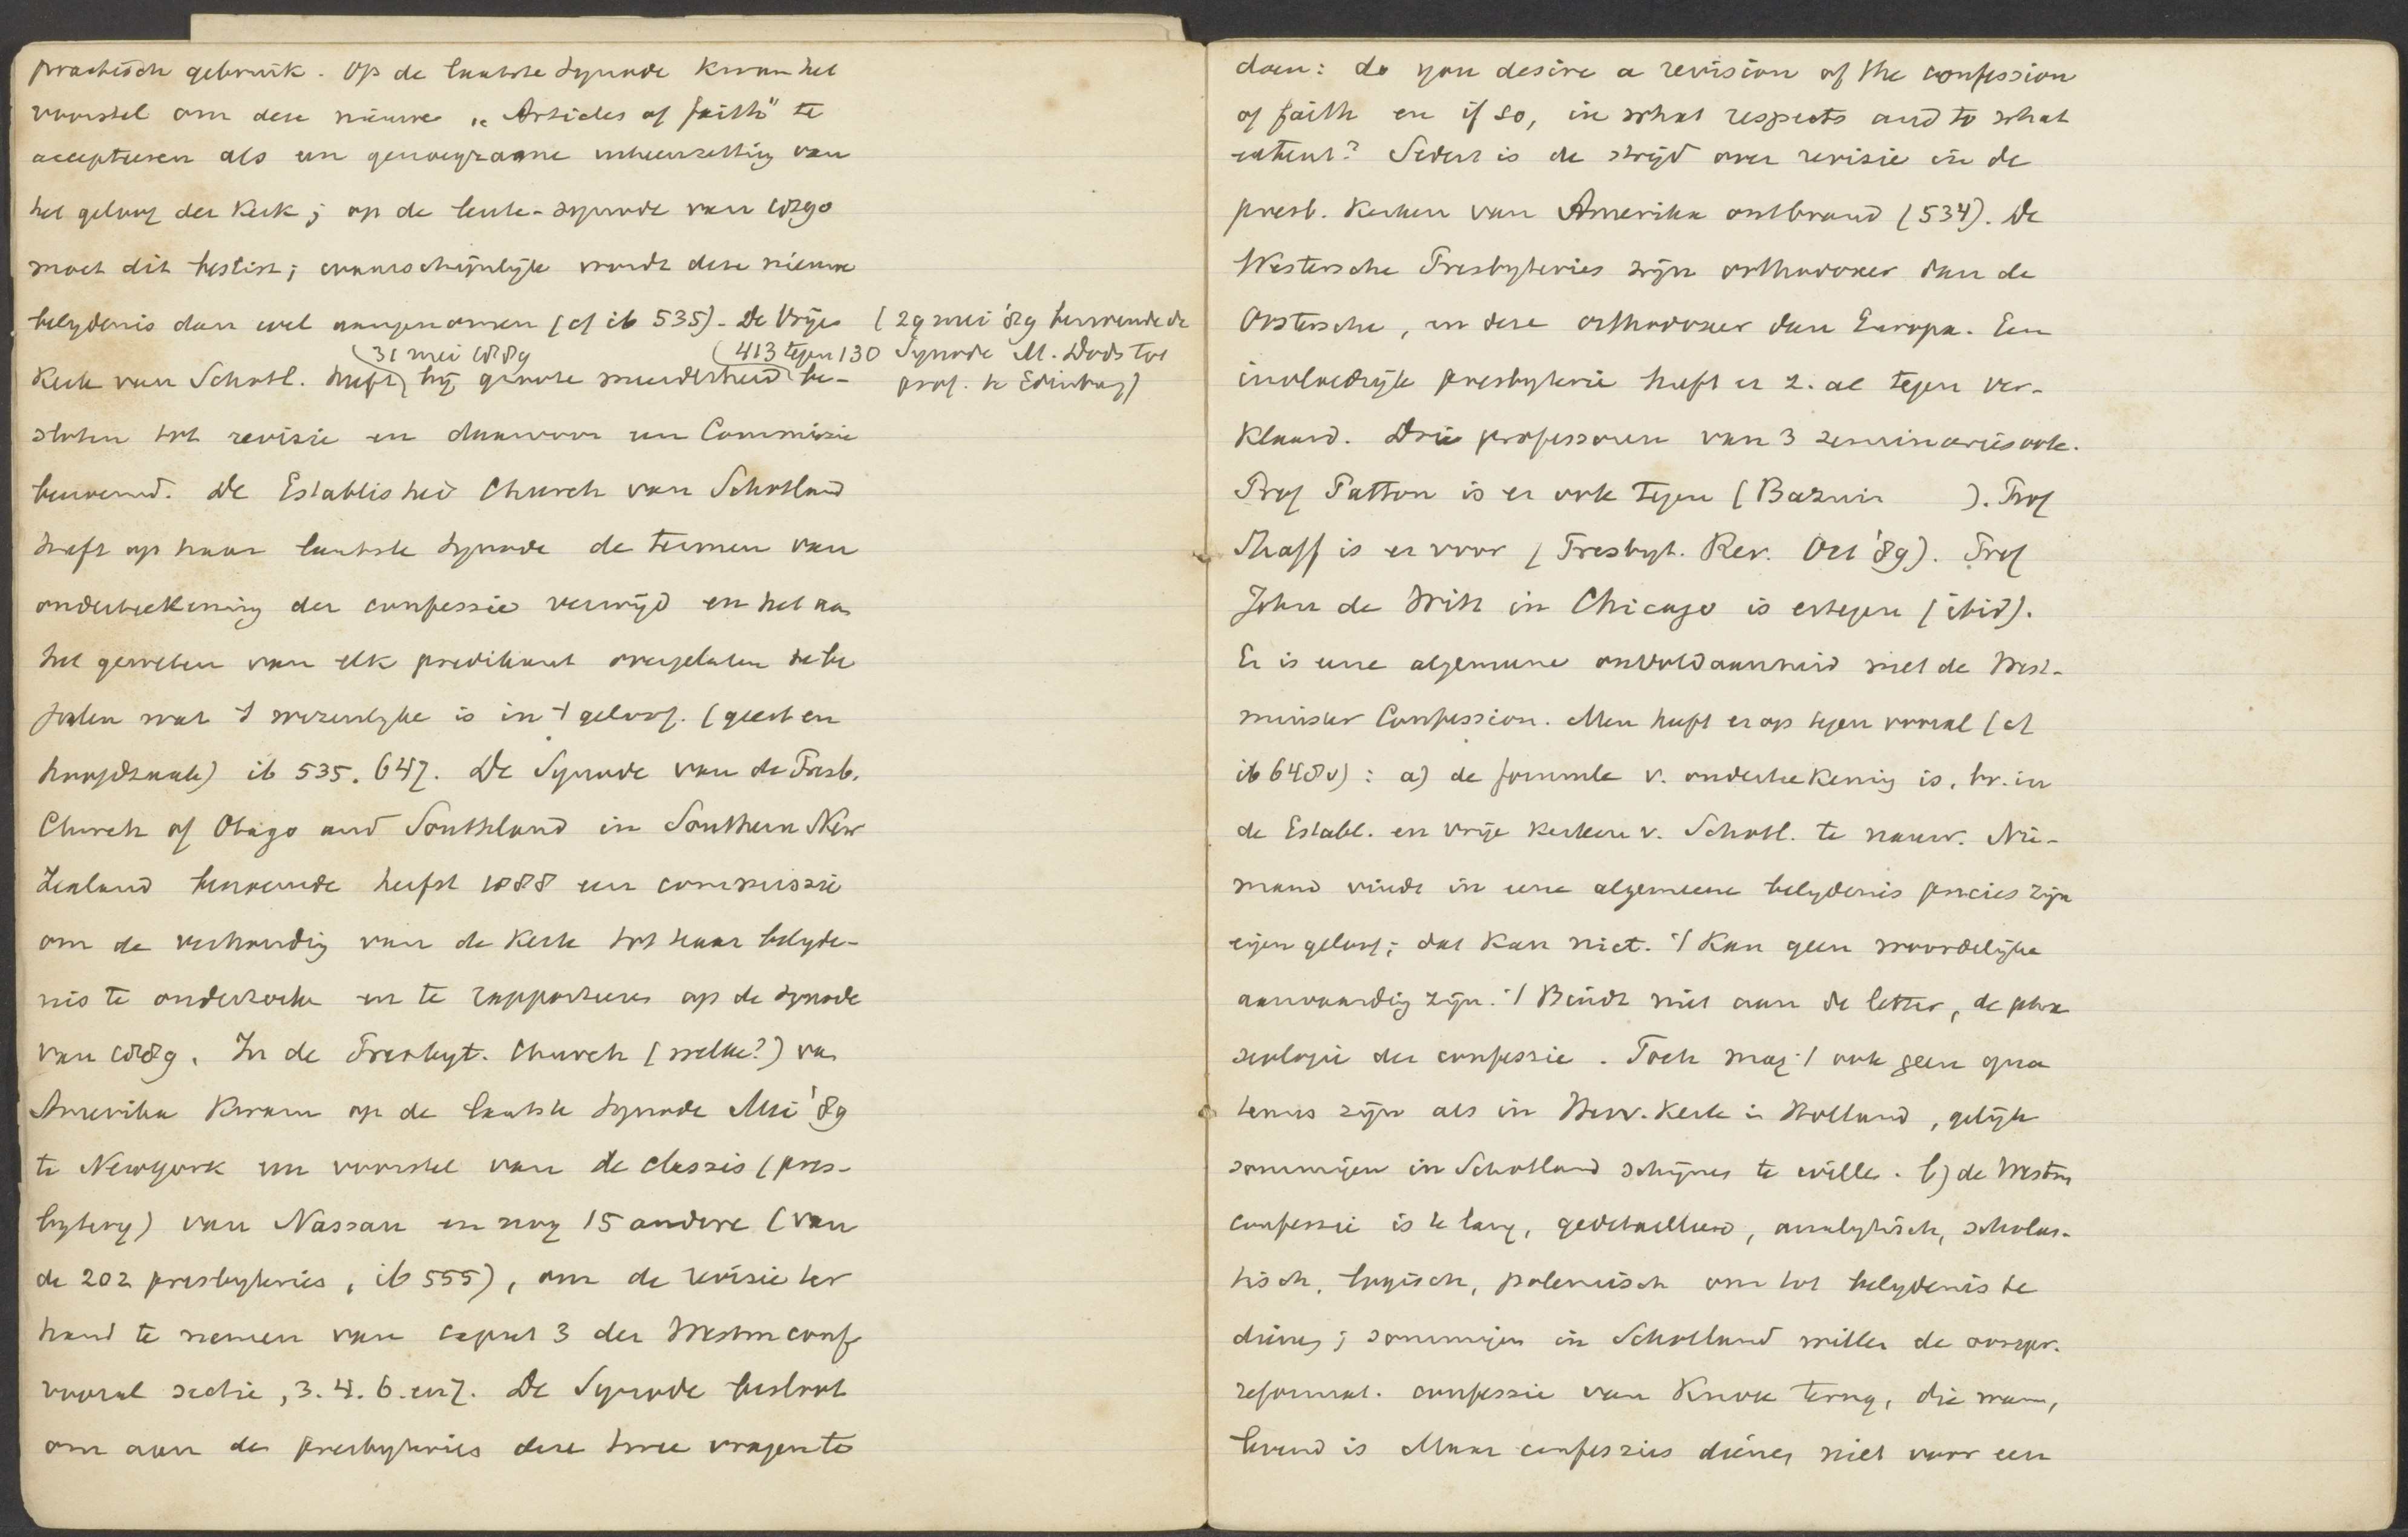 practisch gebruik. Op de laatste Synode kwam het
voorstel om deze nieuwe „Articles of faith" te
accepteeren als een genoegzame uiteenzetting van
het geloof der Kerk; op de lente-synode van 1890
moet dit beslist; waarschijnlijk wordt deze nieuwe
belydenis dan wel aangenomen (cf ib 535). De Vrije
Kerk van Schotl. heeft (31 mei 1889) bij groote meerderheid (413 tegen 130) be-
(29 mei '89 benoemde de
Synode M. Dods tot
prof. te Edinburg)
sloten tot revisie en daarvoor een Commissie
benoemd. De Established Church van Schotland
heeft op haar laatste Synode de termen van
onderteekening der confessie verwijd en het aan
het geweten van elk predikant overgelaten te be-
palen wat 't wezenlyke is in 't geloof. (geest en
hoofdzaak) ib 535. 647. De Synode van de Presb.
Church of Otago and Southland in Southern New
Zealand benoemde herfst 1888 een commissie
om de verhouding van de Kerk tot haar belyde-
nis te onderzoeken en te rapporteeren op de Synode
van 1889. In de Presbyt. Church (welke?) van
Amerika kwam op de laatste Synode Mei '89
te Newyork een voorstel van de classis (pres-
bytery) van Nassau en nog 15 andere (van
de 202 presbyteries, ib 555), om de revisie ter
hand te nemen van caput 3 der Westm conf
vooral sectie, 3. 4. 6. enz. De Synode besloot
om aan de presbyteries deze twee vragen te
doen: do you desire a revision of the confession
of faith en if so, in what respects and to what
extent? Sedert is de strijd over revisie in de
presb. Kerken van Amerika ontbrand (534). De
Westersche Presbyteries zijn orthodoxer dan de
Oostersche, en deze orthodoxer dan Europa. Een
invloedrijke presbyterie heeft er z. al tegen ver-
klaard. Drie professoren van 3 seminaries ook.
Prof Patton is er ook tegen (Bazuin ). Prof
Shaff is er voor (Presbyt. Rev. Oct '89). Prof
John de Witt in Chicago is ertegen (ibid).
Er is eene algemeene onvoldaanheid met de West-
minster Confession. Men heeft er op tegen vooral (cf
ib 648 v): a) de formule v. onderteekening is, bv. in
de Establ. en vrije kerken v. Schotl. te nauw. Nie-
mand vindt in eene algemeene belydenis precies zijn
eigen geloof; dat kan niet. 't Kan geen woordelijke
aanvaarding zijn. 't Bindt niet aan de letter, de phra
seologie der confessie. Toch mag 't ook geen qua
tenus zijn als in Herv. Kerk in Holland, gelijk
sommigen in Schotland schijnen te willen. b) de Westm
confessie is te lang, gedetailleerd, analytisch, scholas-
tisch, logisch, polemisch om tot belydenis te
dienen; sommigen in Schotland willen de oorspr.
reformat. confessie van Knox terug, die warm,
levend is Maar confessies dienen niet voor een